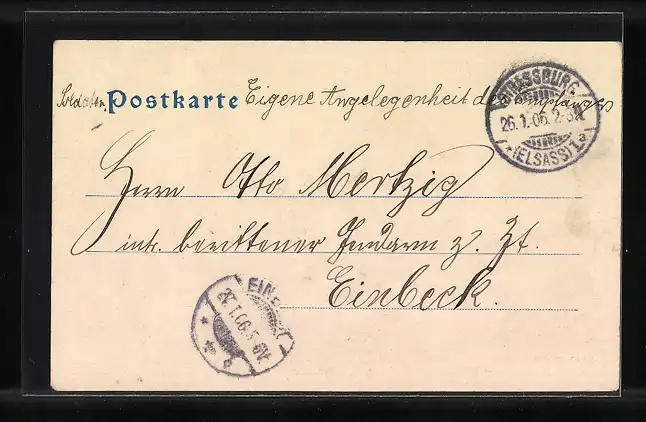 Soldaten Postkarte Eigene Angelegenheit des Empfängers
STRASSBURG
26.1.06. 2-3N
* (ELSASS) 1a
Herrn Otto Mertzig
int. berittener Gendarm z. Zt.
Einbeck.
EINBECK
27.1.06. 5-6V.